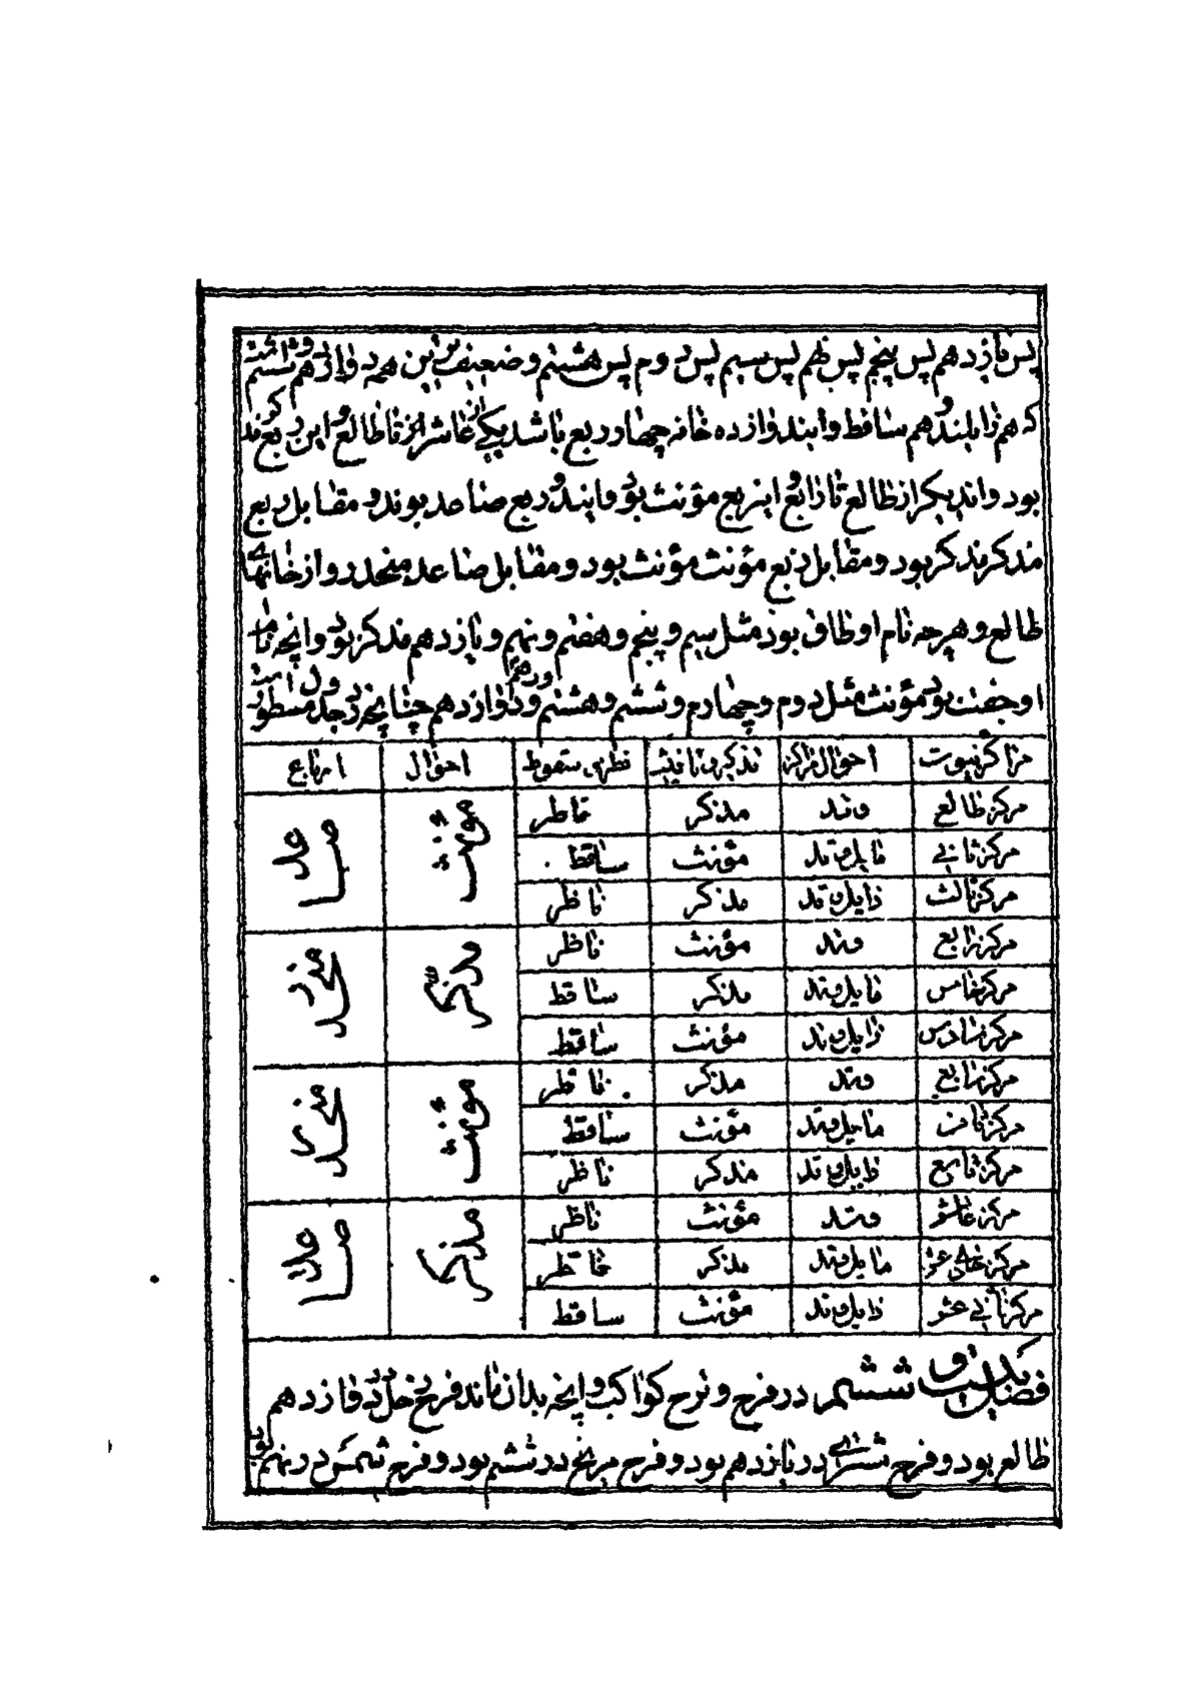 پس یازدهم پس پنجم پس نهم پس سیم پس دوم پس هشتم و ضعیف‌ترین همه دوازدهم و ششم
که هم زایلند و هم ساقط و اینند دوازده خانه چهار ربع باشد یکی از عاشر تا طالع و این ربع مذکر
بود و دیگر از طالع تا رابع و این ربع مؤنث بود و اینند و ربع صاعد بوند و مقابل ربع
مذکر مذکر بود و مقابل ربع مؤنث مؤنث بود و مقابل صاعد منحدر و از خانهای
طالع و هرچه نام او طاق بود مثل سیم و پنجم و هفتم و نهم و یازدهم مذکر بود و آنچه نام
او جفت بود مؤنث مثل دوم و چهارم و ششم و هشتم و دهم و دوازدهم چنانچه در جدول مسطور است
مراکز بیوت احوال مراکز تذکیر و تانیث نظر و سقوط احوال ارباع
مرکز طالع وتد مذکر ناظر مؤنث صاعد
مرکز ثانی مایل وتد مؤنث ساقط
مرکز ثالث زایل وتد مذکر ناظر
مرکز رابع وتد مؤنث ناظر مذکر منحدر
مرکز خامس مایل وتد مذکر ساقط
مرکز سادس زایل وتد مؤنث ساقط
مرکز سابع وتد مذکر ناظر مؤنث منحدر
مرکز ثامن مایل وتد مؤنث ساقط
مرکز تاسع زایل وتد مذکر ناظر
مرکز عاشر وتد مؤنث ناظر مذکر صاعد
مرکز حادی عشر مایل وتد مذکر ناظر
مرکز ثانی عشر زایل وتد مؤنث ساقط
ششم در فرح و ترح کواکب و آنچه بدان ماند فرح زحل در دوازدهم
طالع بود و فرح مشتری در یازدهم بود و فرح مریخ در ششم بود و فرح شمس در نهم بود